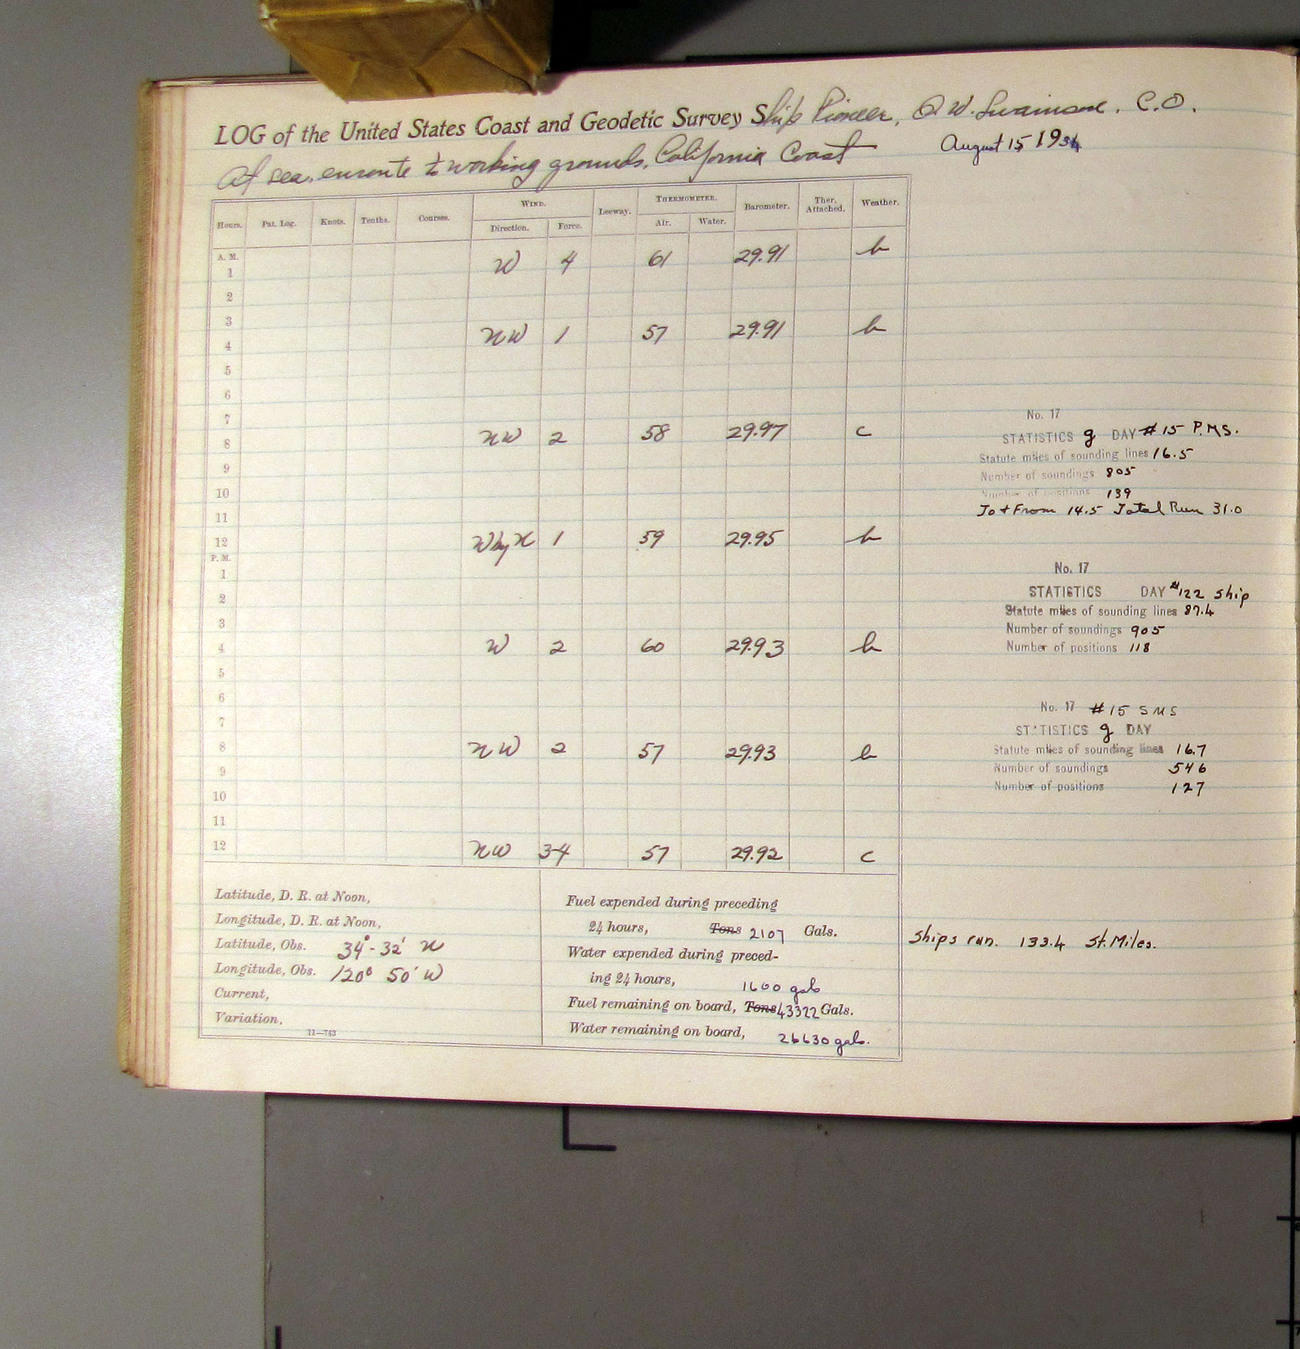 LOG of the United States Coast and Geodetic Survey Ship Pioneer, O.W. Swainson, C.O.
At sea, enroute to working grounds, California Coast August 15, 1934
Hours. Pat. Log. Knots. Tenths. Courses. WIND. Leeway. THERMOMETER. Barometer. Ther. Attached. Weather.
Direction. Force. Air. Water.
A. M.
1 W 4 61 29.91 b
2
3
4 NW 1 57 29.91 b
5
6
7
8 NW 2 58 29.97 c
9
10
11
12 W by N 1 59 29.95 b
P. M.
1
2
3
4 W 2 60 29.93 b
5
6
7
8 NW 2 57 29.93 b
9
10
11
12 NW 3-4 57 29.92 c
No. 17
STATISTICS g DAY #15 P.M.S.
Statute miles of sounding lines 16.5
Number of soundings 805
Number of positions 139
To & From 14.5 Total Run 31.0
No. 17
STATISTICS DAY #122 Ship
Statute miles of sounding lines 87.4
Number of soundings 905
Number of positions 118
No. 17 #15 SMS
STATISTICS g DAY
Statute miles of sounding lines 16.7
Number of soundings 546
Number of positions 127
Latitude, D. R. at Noon,
Longitude, D. R. at Noon,
Latitude, Obs. 34°-32' N
Longitude, Obs. 120° 50' W
Current,
Variation,
11—763
Fuel expended during preceding
24 hours, Tons 2107 Gals.
Water expended during preced-
ing 24 hours, 1600 gals
Fuel remaining on board, Tons 43322 Gals.
Water remaining on board, 26630 gals.
Ships run. 133.4 St. Miles.